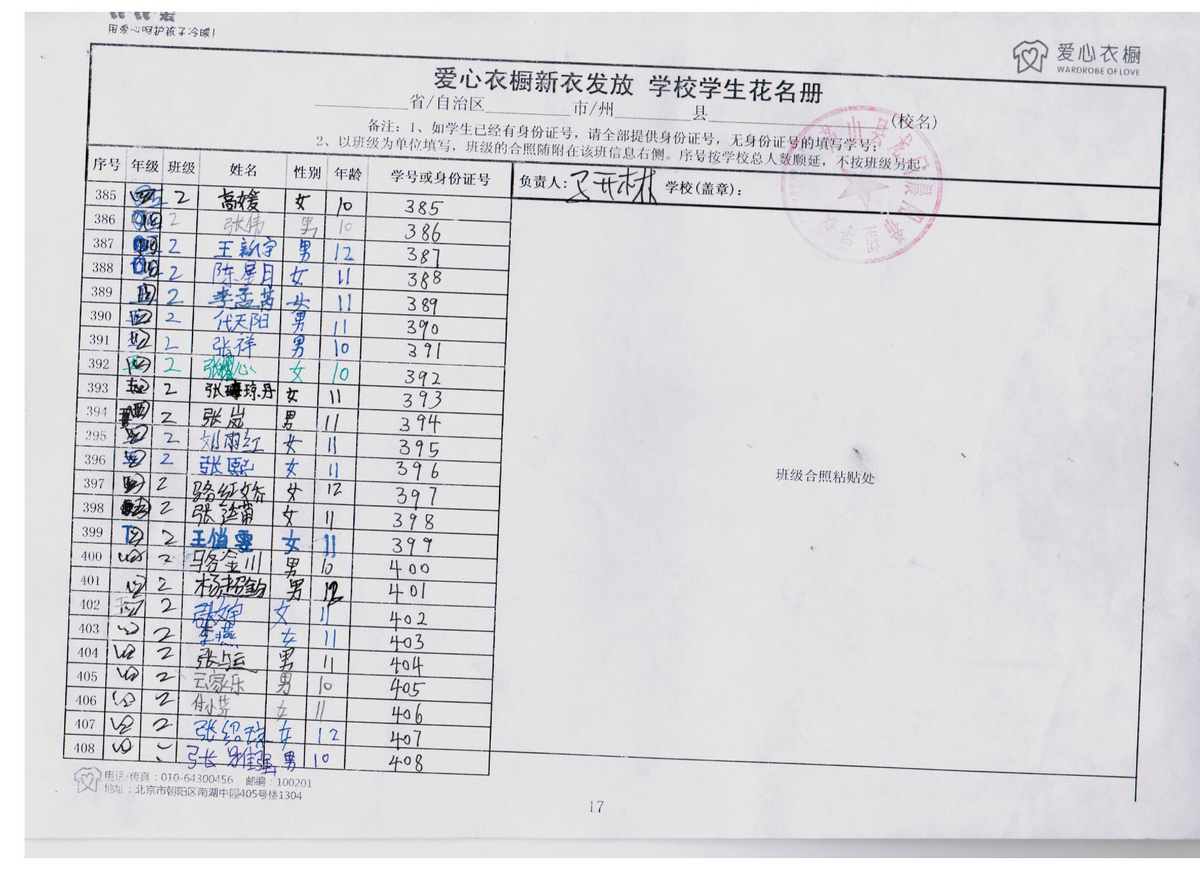 用爱心呵护孩子冷暖!
爱心衣橱
WARDROBE OF LOVE
爱心衣橱新衣发放 学校学生花名册
省/自治区 市/州 县 (校名)
备注：1、如学生已经有身份证号，请全部提供身份证号，无身份证号的填写学号；
2、以班级为单位填写，班级的合照随附在该班信息右侧。序号按学校总人数顺延，不按班级另起
序号 年级 班级 姓名 性别 年龄 学号或身份证号
负责人： 学校(盖章)：
385 2 高媛 女 10 385
386 四 2 张伟 男 10 386
387 2 王新宇 男 12 387
388 四 2 陈星月 女 11 388
389 四 2 李孟茜 女 11 389
390 四 2 代天阳 男 11 390
391 四 2 张祥 男 10 391
392 四 2 张心 女 10 392
393 四 2 张琼丹 女 11 393
394 四 2 张岚 男 11 394
395 四 2 刘雨红 女 11 395
396 四 2 张熙 女 11 396
397 四 2 骆红娇 女 12 397
398 2 张 女 11 398
399 四 2 王俏雯 女 11 399
400 四 2 骆金川 男 10 400
401 四 2 杨韶钧 男 12 401
402 四 2 张文宇 女 11 402
403 四 2 李燕 女 11 403
404 四 2 张占云 男 11 404
405 四 2 云家乐 男 10 405
406 四 2 付小芳 女 11 406
407 四 2 张绍琼 女 12 407
408 四 张雅强 男 10 408
班级合照粘贴处
电话/传真：010-64300456 邮编：100201
地址：北京市朝阳区南湖中园405号楼1304
17